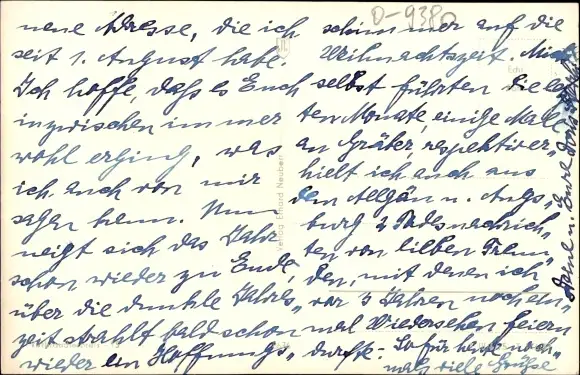 neue Adresse, die ich
seit 1. August habe.
Ich hoffe, dass es Euch
inzwischen immer
wohl erging, was
ich auch von mir
sagen kann. Nun
neigt sich das Jahr
schon wieder zu Ende,
über die dunkle Jahres„
zeit strahlt bald schon
wieder ein Hoffnungs„
schimmer auf die
Weihnachtszeit. Mich
selbst führten die letz
ten Monate, einige Male
an Gräber, respektive er„
hielt ich auch aus
dem Allgäu u. Augs„
burg 2 Todesnachrich„
ten von lieben Freun„
den, mit denen ich
vor 3 Jahren noch ein„
mal Wiedersehen feiern
durfte. – So für heute noch„
mals viele Grüße
u. Eure
D-9380
Verlag Erhard Neubert